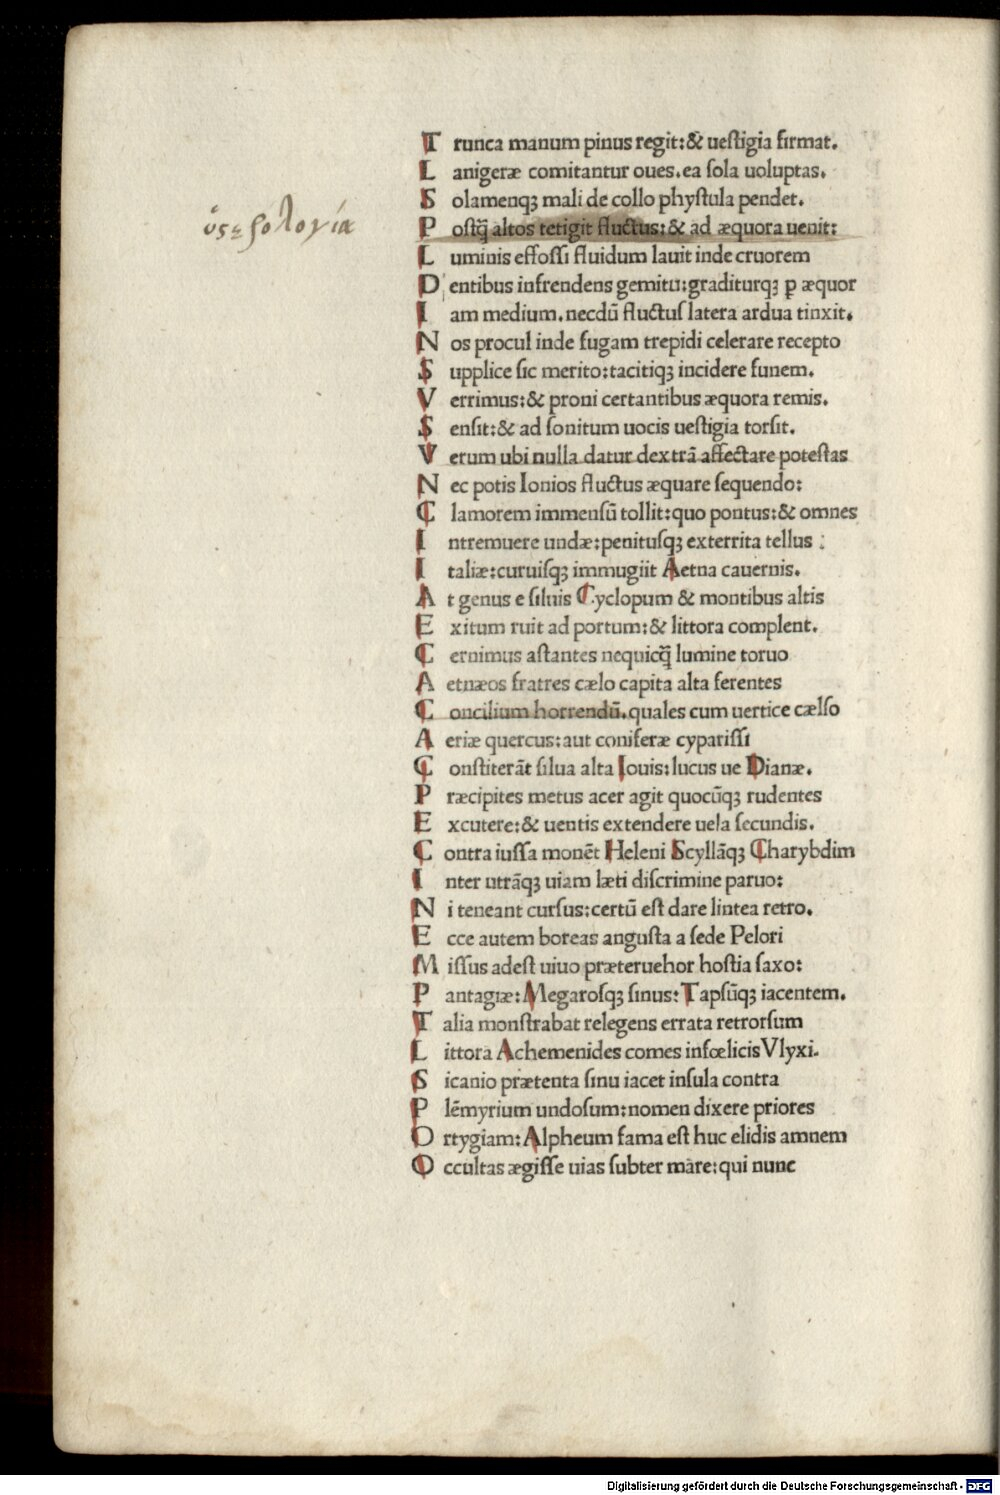 ὑςεροlογία
T runca manum pinus regit:& ueſtigia firmat.
L anigeræ comitantur oues.ea ſola uoluptas.
S olamenqꝫ mali de collo phyſtula pendet.
P oſtq̃ altos tetigit fluctus:& ad æquora uenit:
L uminis effoſſi fluidum lauit inde cruorem
D entibus infrendens gemitu:graditurqꝫ ꝑ æquor
I am medium.necdũ fluctuſ latera ardua tinxit.
N os procul inde fugam trepidi celerare recepto
S upplice ſic merito:tacitiqꝫ incidere funem.
V errimus:& proni certantibus æquora remis.
S enſit:& ad ſonitum uocis ueſtigia torſit.
V erum ubi nulla datur dextrã affectare poteſtas
N ec potis Ionios fluctus æquare ſequendo:
C lamorem immenſũ tollit:quo pontus:& omnes
I ntremuere undæ:penituſqꝫ exterrita tellus :
I taliæ:curuiſqꝫ immugiit Aetna cauernis.
A t genus e ſiluis Cyclopum & montibus altis
E xcitum ruit ad portum:& littora complent.
C ernimus aſtantes nequicq̃ lumine toruo
A etnæos fratres cælo capita alta ferentes
C oncilium horrendũ.quales cum uertice cælſo
A eriæ quercus:aut coniferæ cypariſſi
C onſtiterãt ſilua alta Iouis:lucus ue Dianæ.
P ræcipites metus acer agit quocũqꝫ rudentes
E xcutere:& uentis extendere uela ſecundis.
C ontra iuſſa monẽt Heleni Scyllãqꝫ Charybdim
I nter utrãqꝫ uiam læti diſcrimine paruo:
N i teneant curſus:certũ eſt dare lintea retro.
E cce autem boreas anguſta a ſede Pelori
M iſſus adeſt uiuo præteruehor hoſtia ſaxo:
P antagiæ:Megaroſqꝫ ſinus:Tapſũqꝫ iacentem.
T alia monſtrabat relegens errata retrorſum
L ittora Achemenides comes infœlicis Vlyxi.
S icanio prætenta ſinu iacet inſula contra
P lẽmyrium undoſum:nomen dixere priores
O rtygiam:Alpheum fama eſt huc elidis amnem
O ccultas ægiſſe uias ſubter mare:qui nunc
Digitalisierung gefördert durch die Deutsche Forschungsgemeinschaft - DFG